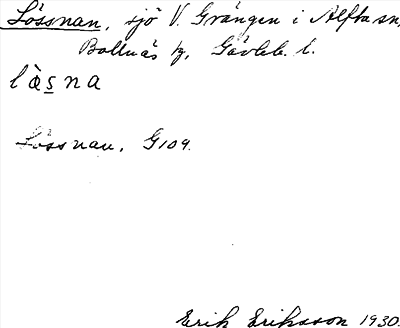 Lössnan, sjö V. Grängen i Alfta sn,
Bollnäs tg, Gävleb. l.
lὰsna
Lössnan, G109.
Erik Eriksson 1930.